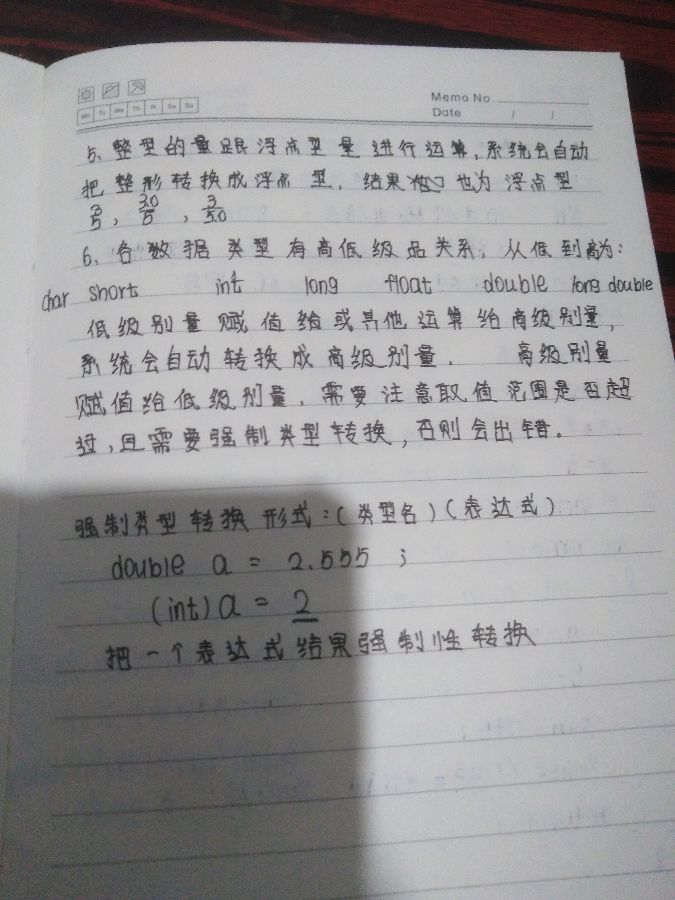 Mo Tu We Th Fr Sa Su
Memo No.
Date / /
5、整型的量跟浮点型量进行运算,系统会自动
把整形转换成浮点型,结果也为浮点型
3/5, 3.0/5, 3/5.0
6、各数据类型有高低级品关系,从低到高为:
char short int long float double long double
低级别量赋值给或其他运算给高级别量,
系统会自动转换成高级别量. 高级别量
赋值给低级别量,需要注意取值范围是否超
过,且需要强制类型转换,否则会出错.
强制类型转换形式:(类型名)(表达式)
double a = 2.555 ;
(int)a = 2
把一个表达式结果强制性转换